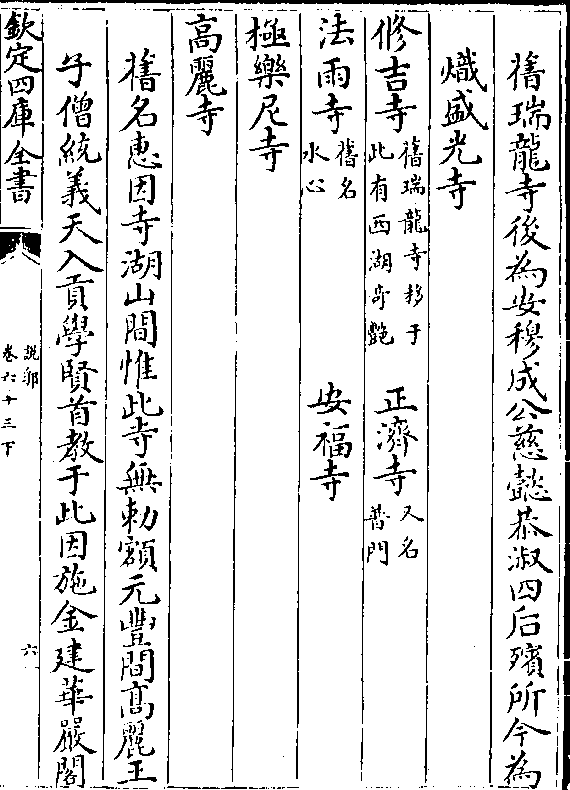 舊瑞龍寺後為安穆成公慈懿恭淑四后殯所今為
熾盛光寺
修吉寺舊瑞龍寺移于此有西湖奇艷 正濟寺又名普門
法雨寺舊名水心 安福寺
極樂尼寺
高麗寺
舊名惠因寺湖山間惟此寺無勅額元豐間高麗王
子僧統義天入貢學賢首教于此因施金建華嚴閣
欽定四庫全書
說郛
卷六十三下
六